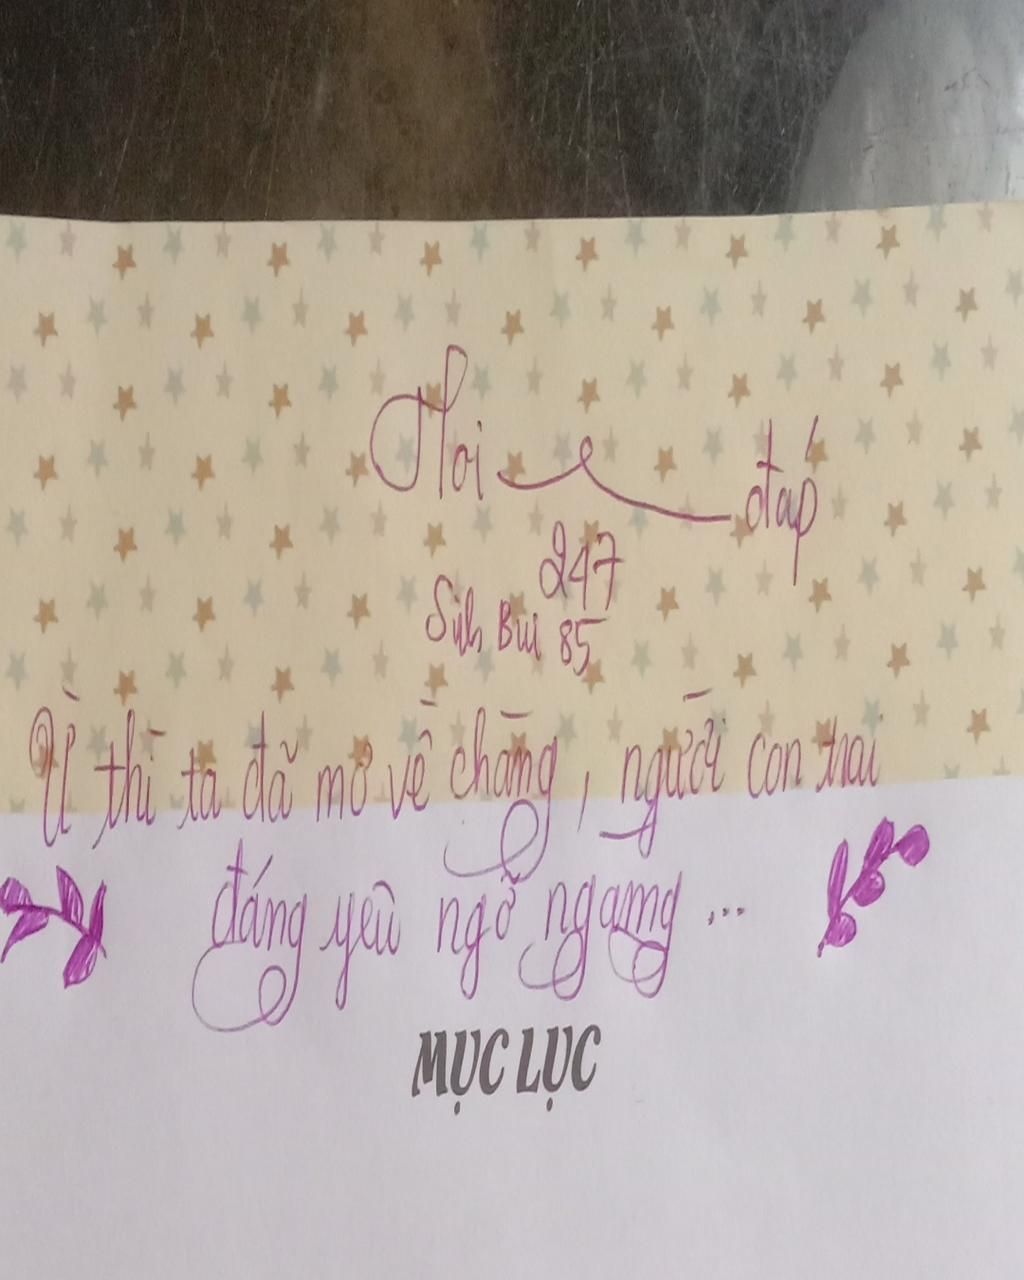 Hoi đáp
247
Sinh Bùi 85
Ừ thì ta đã mơ về chàng, người con trai
đáng yêu ngỡ ngàng ...
MỤC LỤC